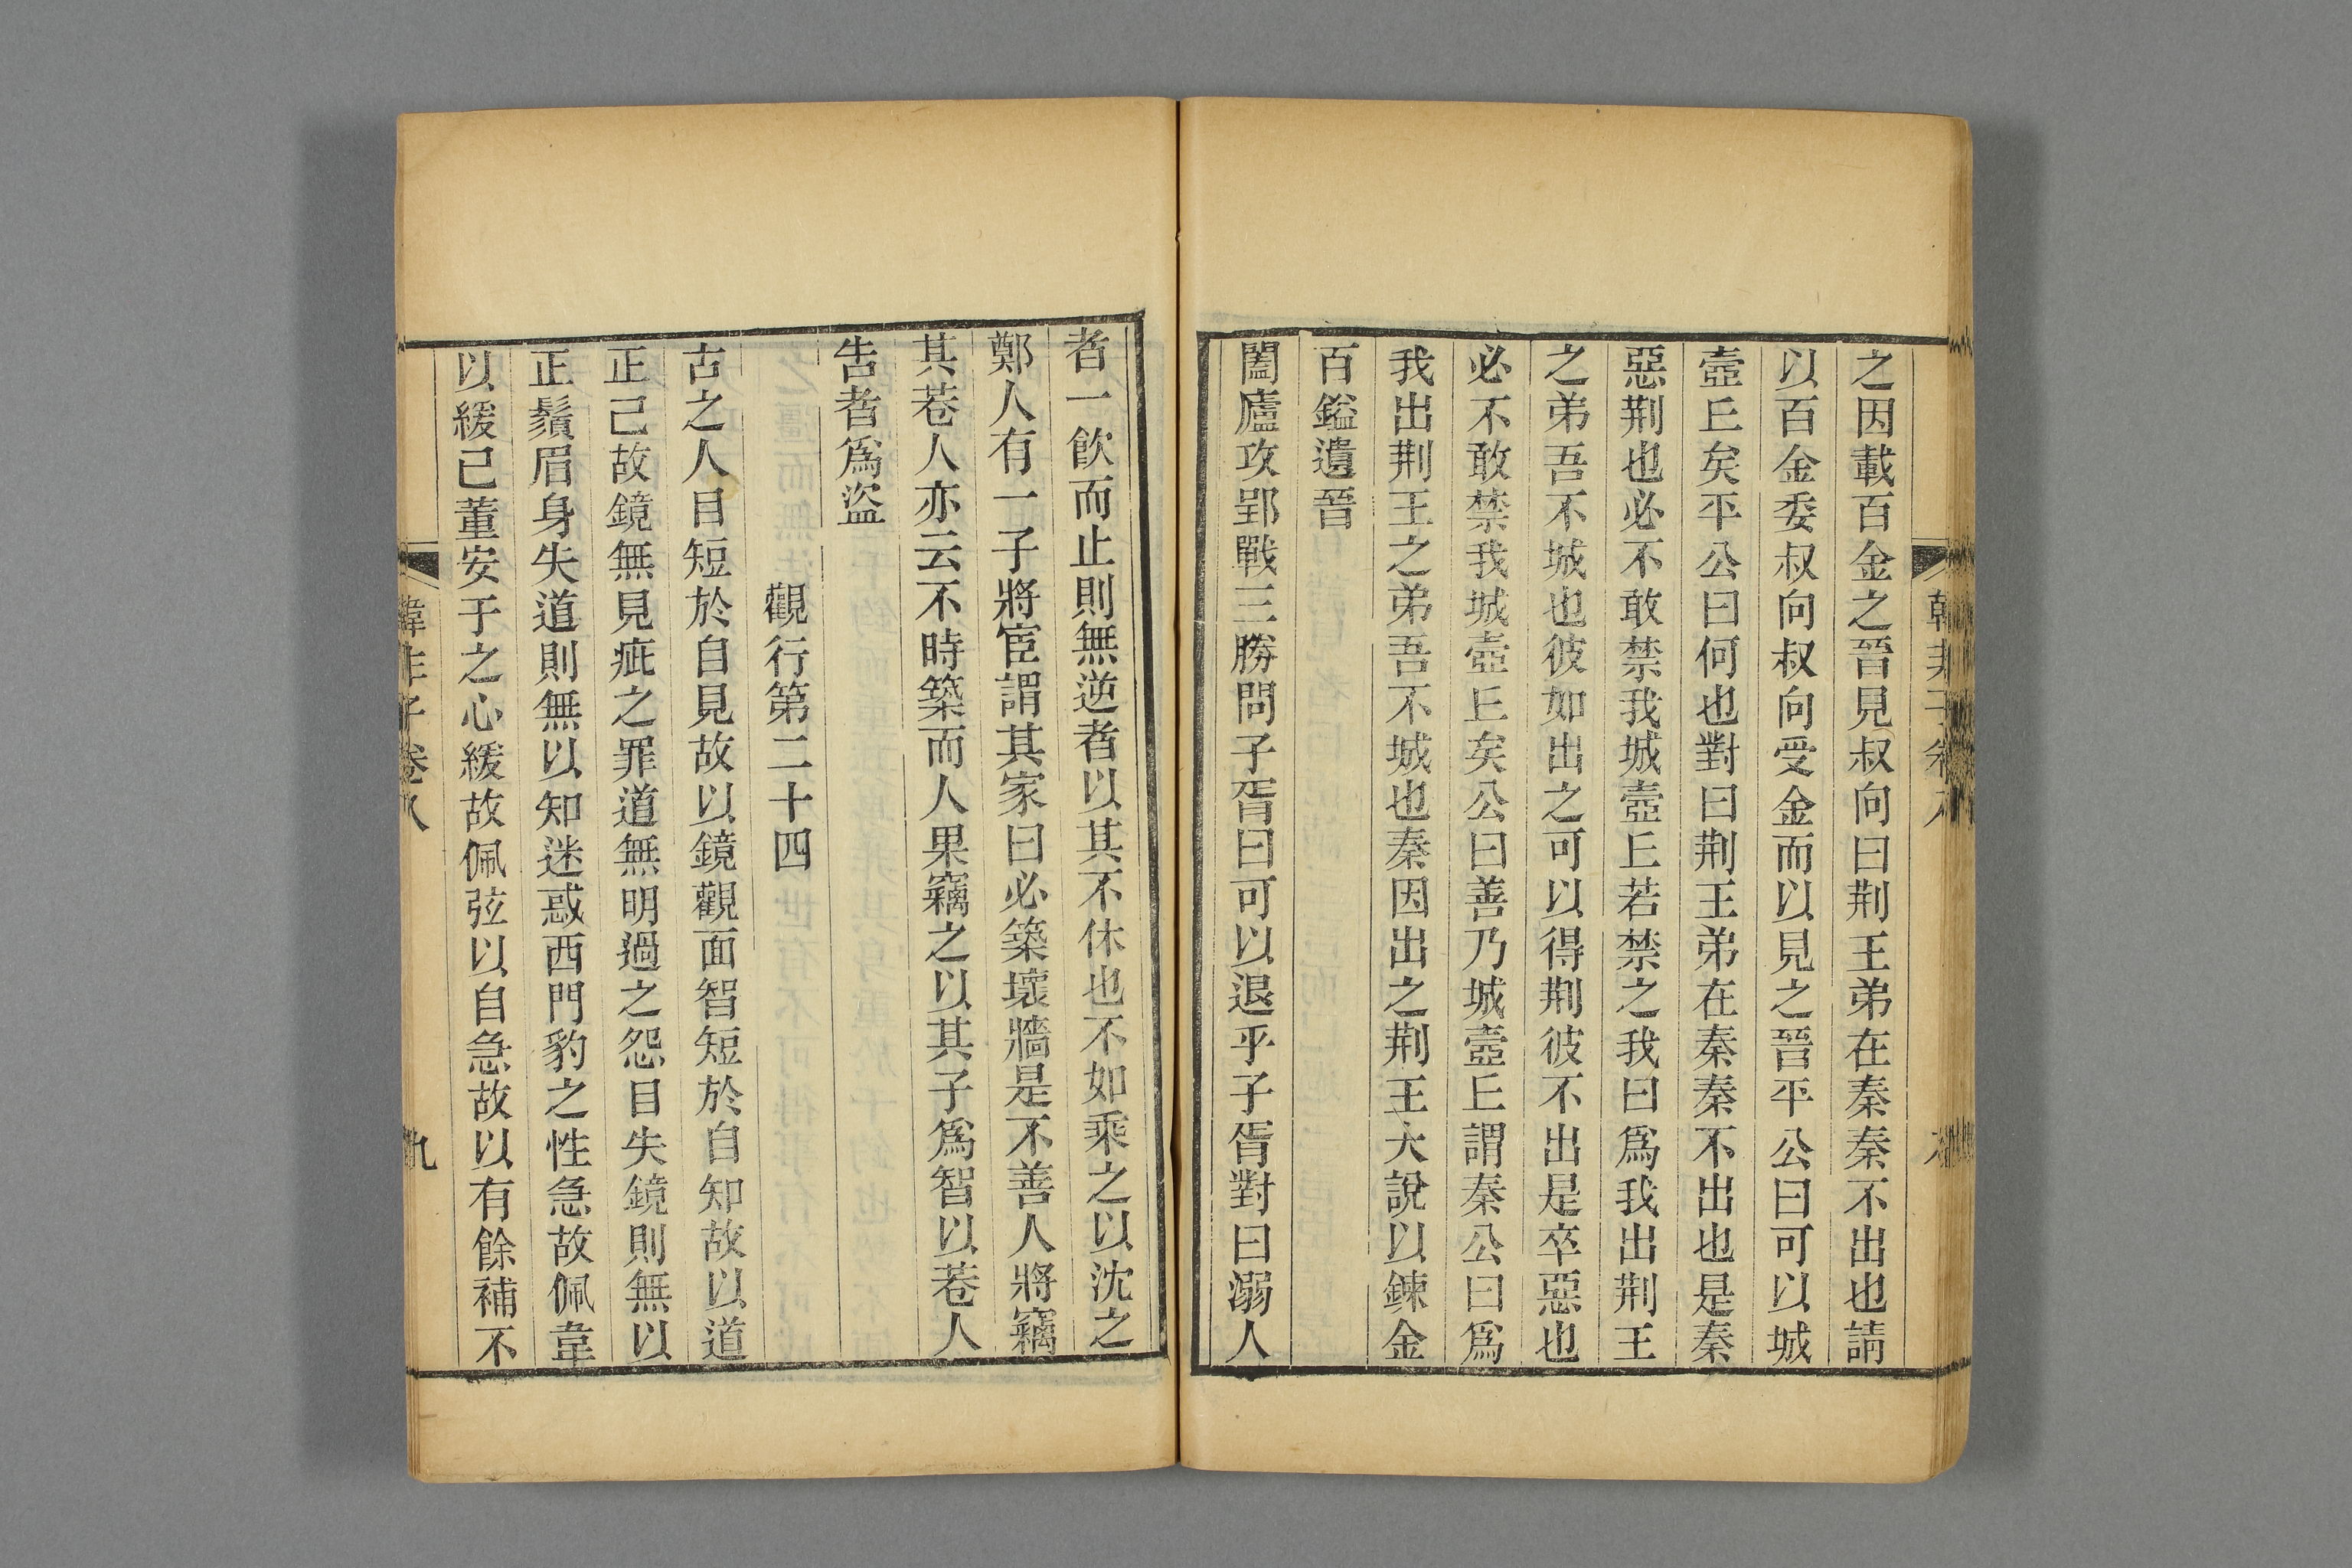 之因載百金之晉見叔向曰荆王弟在秦秦不出也請
以百金委叔向叔向受金而以見之晉平公曰可以城
壺丘矣平公曰何也對曰荆王弟在秦秦不出也是秦
惡荆也必不敢禁我城壺丘若禁之我曰爲我出荆王
之弟吾不城也彼如出之可以得荆彼不出是卒惡也
必不敢禁我城壺丘矣公曰善乃城壺丘謂秦公曰爲
我出荆王之弟吾不城也秦因出之荆王大說以鍊金
百鎰遺晉
闔廬攻郢戰三勝問子胥曰可以退乎子胥對曰溺人
者一飮而止則無逆者以其不休也不如乘之以沈之
鄭人有一子將宦謂其家曰必築壞牆是不善人將竊
其巷人亦云不時築而人果竊之以其子爲智以巷人
告者爲盜
觀行第二十四
古之人目短於自見故以鏡觀面智短於自知故以道
正己故鏡無見疵之罪道無明過之怨目失鏡則無以
正鬚眉身失道則無以知迷惑西門豹之性急故佩韋
以緩己董安于之心緩故佩弦以自急故以有餘補不
韓非子卷八
九